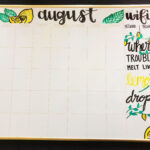 august
wifi
where
TROUBL
MELT LIK
lemon
drop